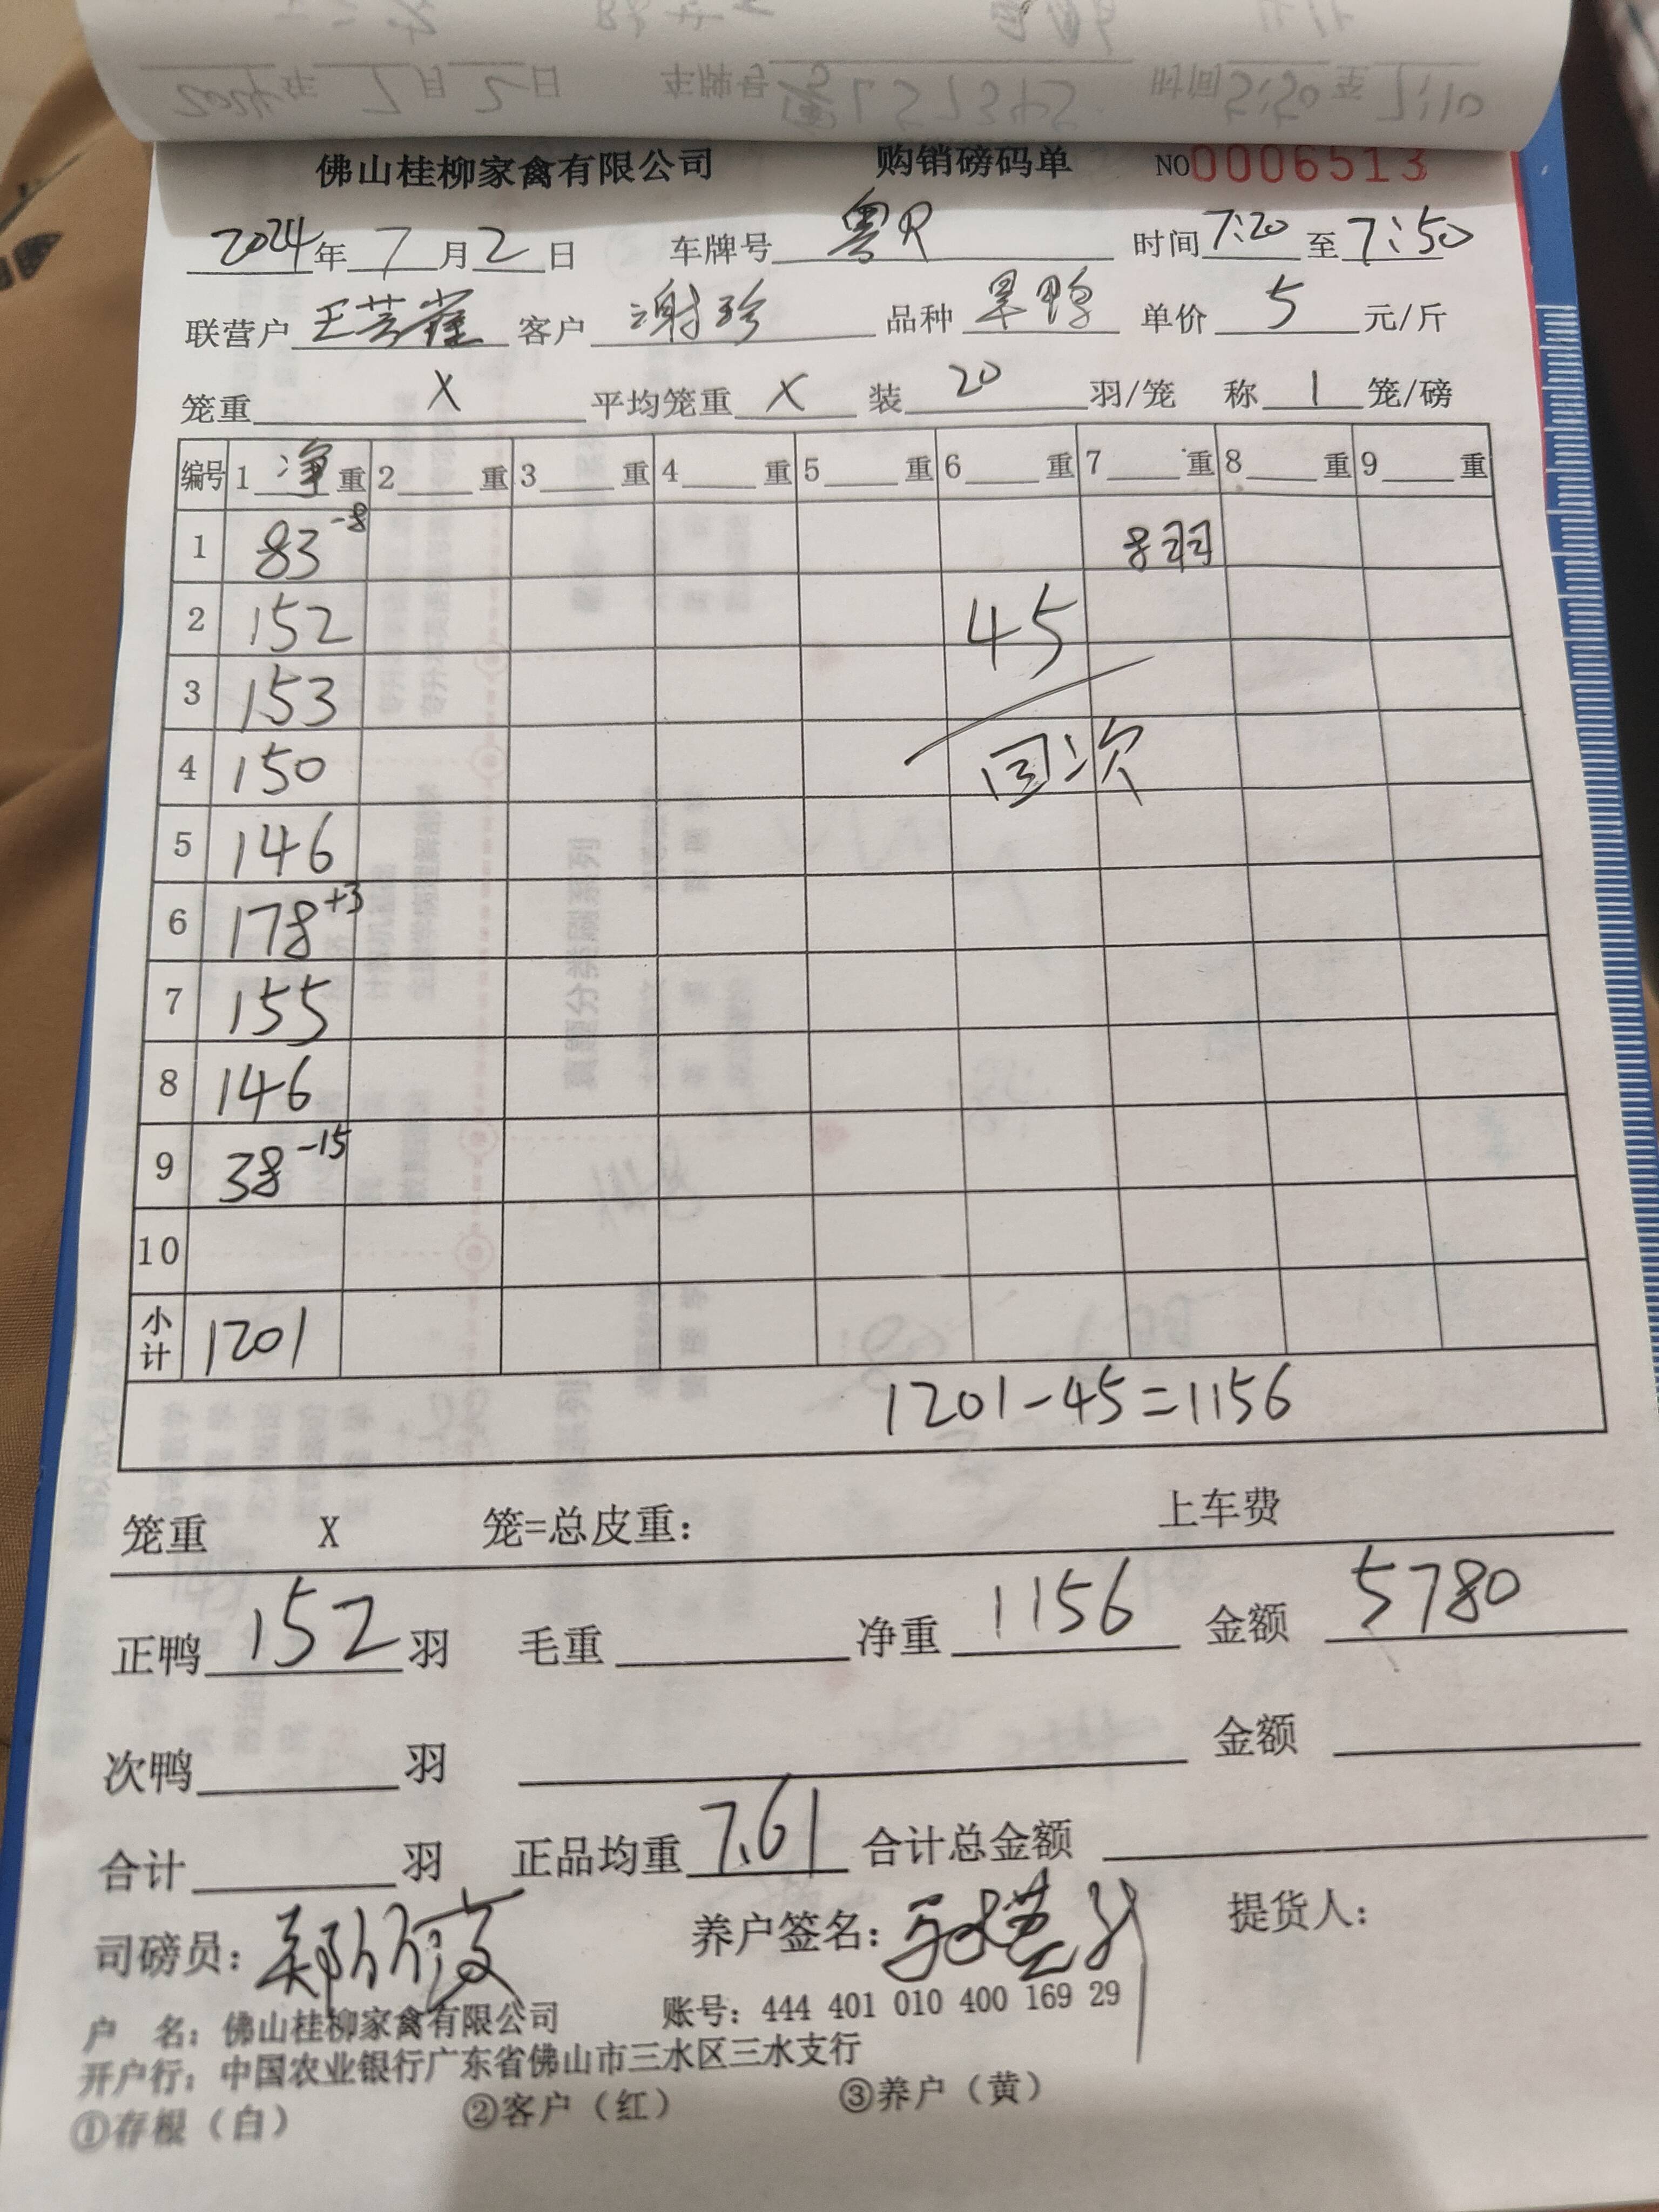 佛山桂柳家禽有限公司 购销磅码单 NO0006513
2024年7月2日 车牌号 粤R 时间7:20至7:50
联营户 客户 谢珍 品种 旱鸭 单价 5 元/斤
笼重 X 平均笼重 X 装 20 羽/笼 称 1 笼/磅
编号 1 净 重 2 重 3 重 4 重 5 重 6 重 7 重 8 重 9 重
1 83 -8 8羽
2 152 45
3 153
4 150 回次
5 146
6 178 +3
7 155
8 146
9 38 -15
10
小计 1201
1201-45=1156
笼重 X 笼=总皮重: 上车费
正鸭 152 羽 毛重 净重 1156 金额 5780
次鸭 羽 金额
合计 羽 正品均重 7.61 合计总金额
司磅员: 养户签名: 提货人:
户 名: 佛山桂柳家禽有限公司 账号: 444 401 010 400 169 29
开户行: 中国农业银行广东省佛山市三水区三水支行
①存根（白） ②客户（红） ③养户（黄）